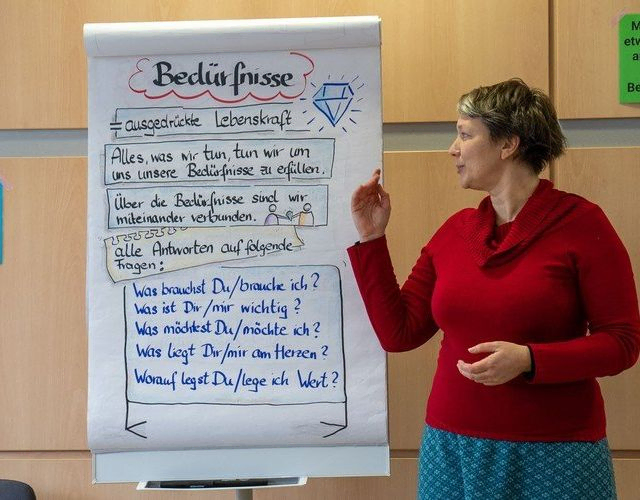 Bedürfnisse
= ausgedrückte Lebenskraft
Alles, was wir tun, tun wir um
uns unsere Bedürfnisse zu erfüllen.
Über die Bedürfnisse sind wir
miteinander verbunden.
alle Antworten auf folgende
Fragen:
Was brauchst Du/brauche ich?
Was ist Dir/mir wichtig?
Was möchtest Du/möchte ich?
Was liegt Dir/mir am Herzen?
Worauf legst Du/lege ich Wert?